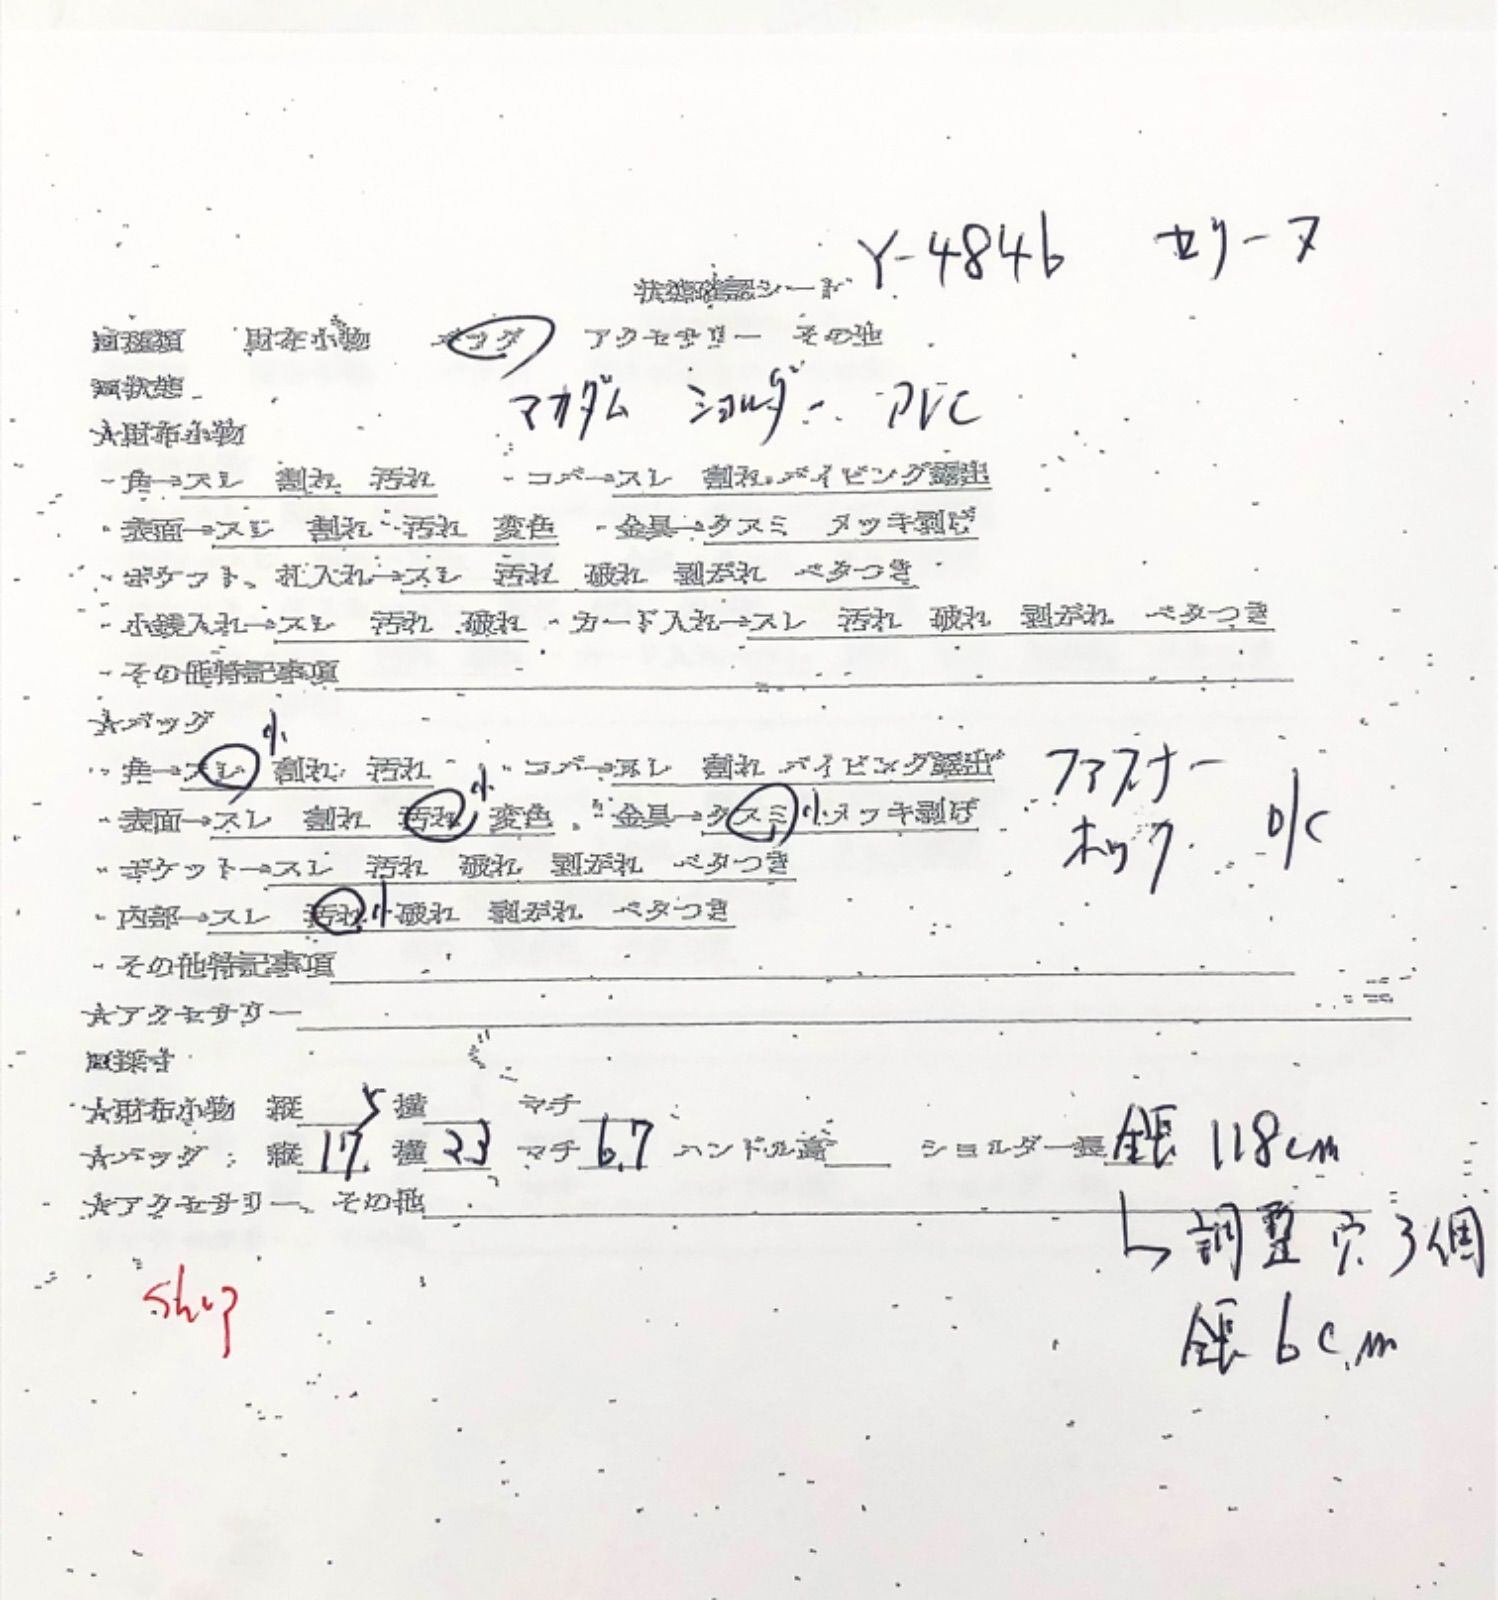 Y-4846 セリーヌ
状態確認シート
■種類 財布小物 バッグ アクセサリー その他
■状態
マカダム ショルダー PVC
★財布小物
・角→スレ 割れ 汚れ ・コバ→スレ 割れ パイピング露出
・表面→スレ 割れ 汚れ 変色 ・金具→クスミ メッキ剥げ
・ポケット、札入れ→スレ 汚れ 破れ 剥がれ ベタつき
・小銭入れ→スレ 汚れ 破れ ・カード入れ→スレ 汚れ 破れ 剥がれ ベタつき
・その他特記事項
★バッグ
・角→スレ 小 割れ 汚れ ・コバ→スレ 割れ パイピング露出 ファスナー
・表面→スレ 割れ 汚れ 小 変色 ・金具→クスミ 小 メッキ剥げ ホック O/C
・ポケット→スレ 汚れ 破れ 剥がれ ベタつき
・内部→スレ 汚れ 小 破れ 剥がれ ベタつき
・その他特記事項
★アクセサリー
■採寸
★財布小物 縦 横 マチ
★バッグ 縦 17.5 横 23 マチ 6.7 ハンドル高 ショルダー長 全長 118cm
★アクセサリー、その他
↳調整穴3個
全長 6cm